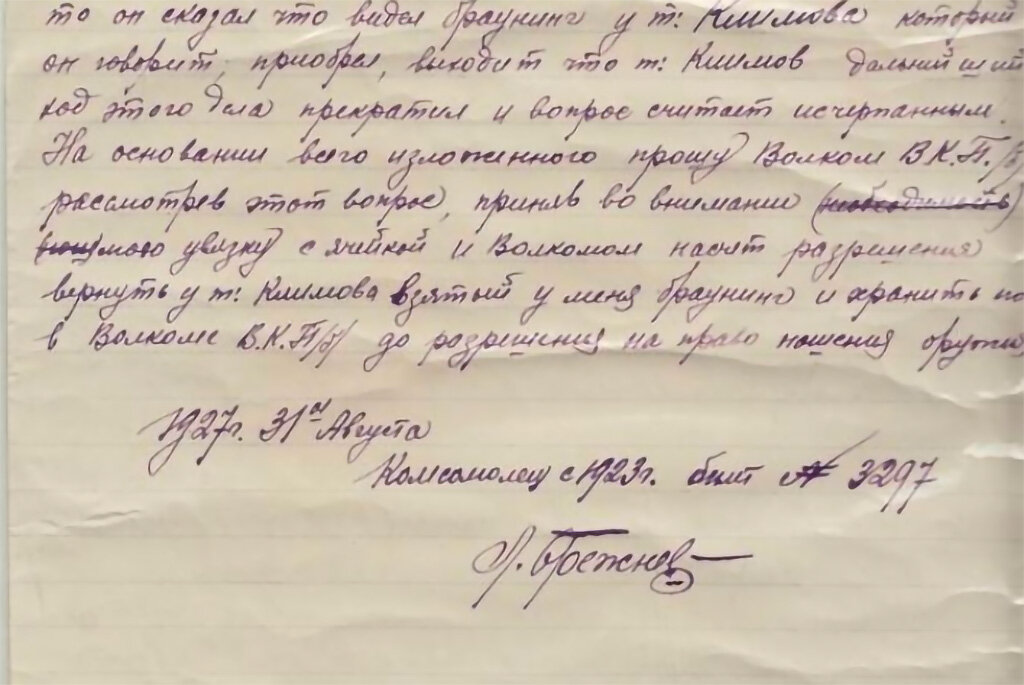 то он сказал что видел браунинг у т: Климова который
он говорит, приобрел, выходит что т: Климов дальнийший
ход этого дела прекратил и вопрос считает исчерпанным.
На основании всего изложенного прошу Волком В.К.П./б/
рассмотрев этот вопрос, приняв во внимании (необходимость)
мою увязку с ячейкой и Волкомом насчит разришения
вернуть у т: Климова взятый у меня браунинг и хранить
в Волкоме В.К.П/б/ до розрешения на право ношения оружия
1927г. 31го Августа
Комсомолец с 1923г. билт № 3297
Л. Брежнев